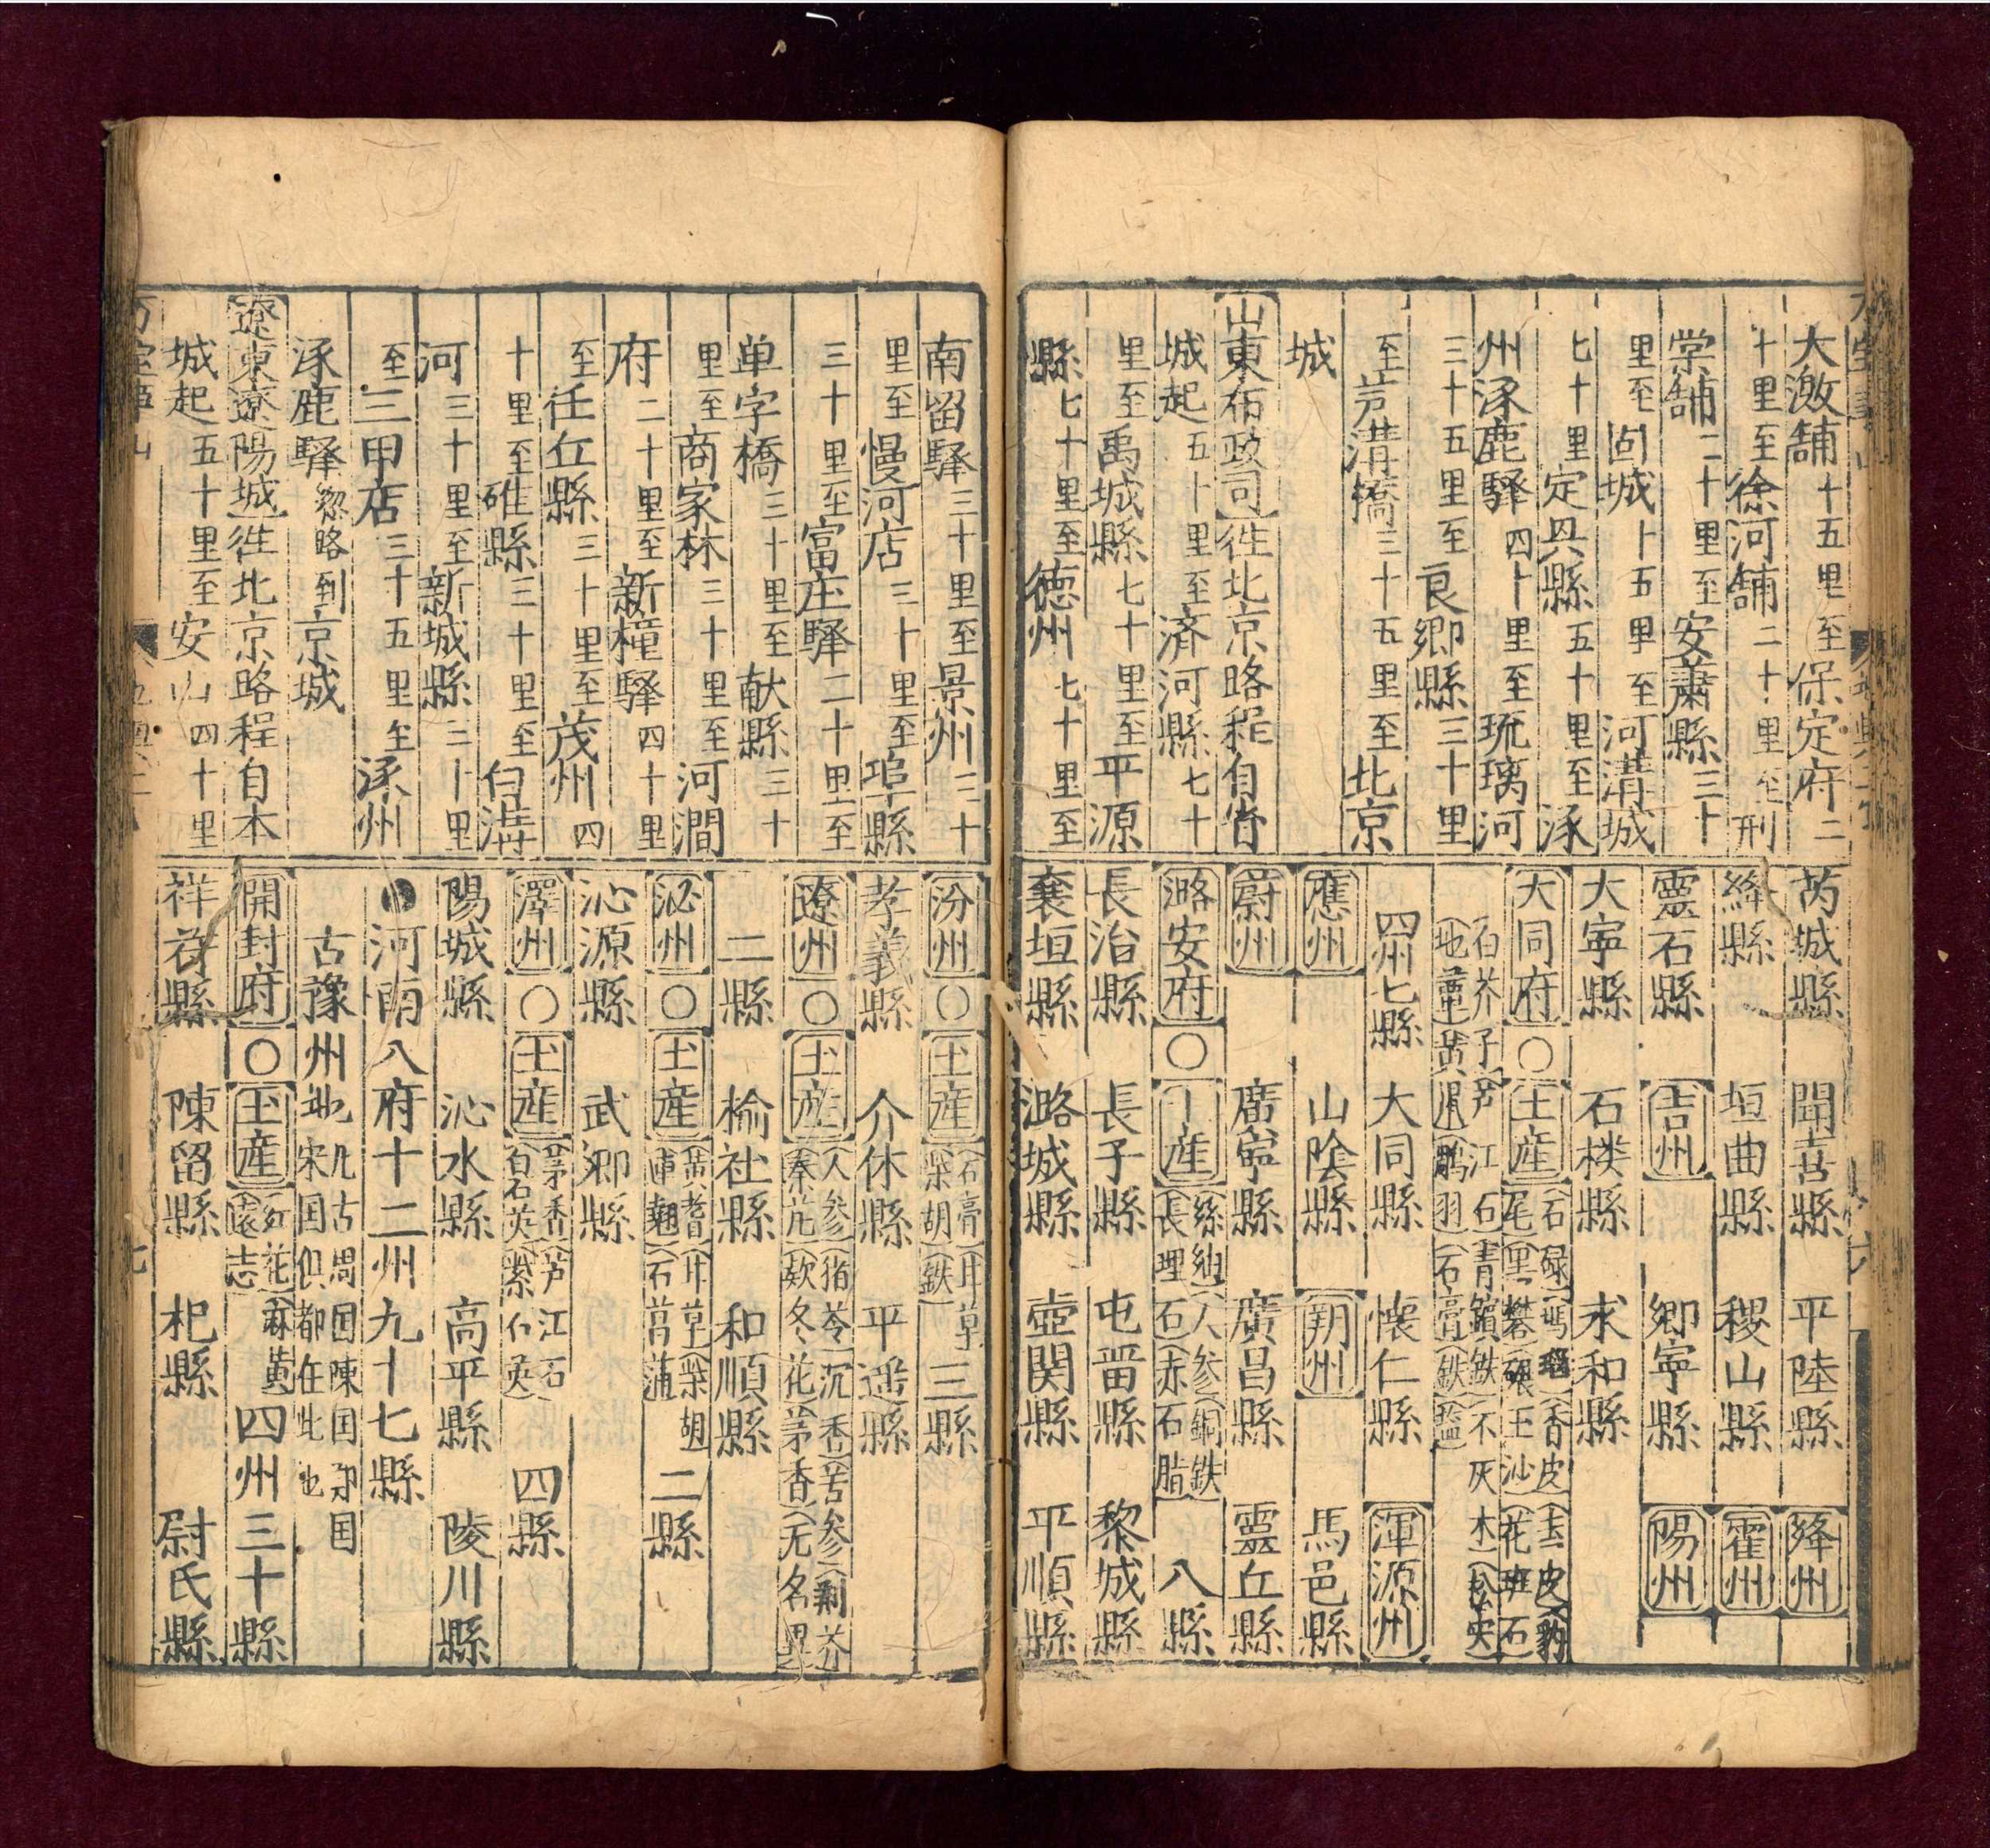 大激舗十五里至保定府二
十里至徐河舗二十里至刑
棠舗二十里至安蕭縣三十
里至固城十五里至河溝城
七十里定興縣五十里至涿
州涿鹿驛四十里至琉璃河
三十五里至良鄉縣三十里
至芦溝橋三十五里至北京
城
山東布政司徃北京路程自省
城起五十里至済河縣七十
里至禹城縣七十里至平源
縣七十里至德州七十里至
芮城縣 聞喜縣 平陸縣 絳州
絳縣 垣曲縣 稷山縣 霍州
靈石縣 吉州 鄉寧縣 隰州
大寧縣 石楼縣 永和縣
大同府〇土産
四州七縣 大同縣 懐仁縣 渾源州
應州 山陰縣 朔州 馬邑縣
蔚州 廣寧縣 廣昌縣 靈丘縣
潞安府〇土産 人参 銅鉄 長理石 赤石脂 八縣
長治縣 長子縣 屯畱縣 黎城縣
襄垣縣 潞城縣 壺関縣 平順縣
南留驛三十里至景州三十
里至慢河店三十里至埠縣
三十里至富庄驛二十里至
单字橋三十里至献縣三十
里至商家林三十里至河澗
府二十里至新橦驛四十里
至任丘縣三十里至茂州四
十里至碓縣三十里至白溝
河三十里至新城縣三十里
至三甲店三十五里至涿州
涿鹿驛 路到京城
遼東遼陽城徃北京路程自本
城起五十里至安山四十里
汾州〇土産 石膏 甘草 柴胡 鉄 三縣
孝義縣 介休縣 平遥縣
遼州〇土産 人参 猪苓 沉香 苦参 荆芥 秦艽 欵冬花 茅香 无名異
二縣 榆社縣 和順縣
沁州〇土産 黄耆 甘草 柴胡 石菖蒲 二縣
沁源縣 武鄉縣
澤州〇土産 茅香 芦江石 白石英 紫石英 四縣
陽城縣 沁水縣 高平縣 陵川縣
河南八府十二州九十七縣
古豫州地
開封府〇土産 紅花 麻黄 遠志 四州三十縣
祥符縣 陳留縣 杞縣 尉氏縣